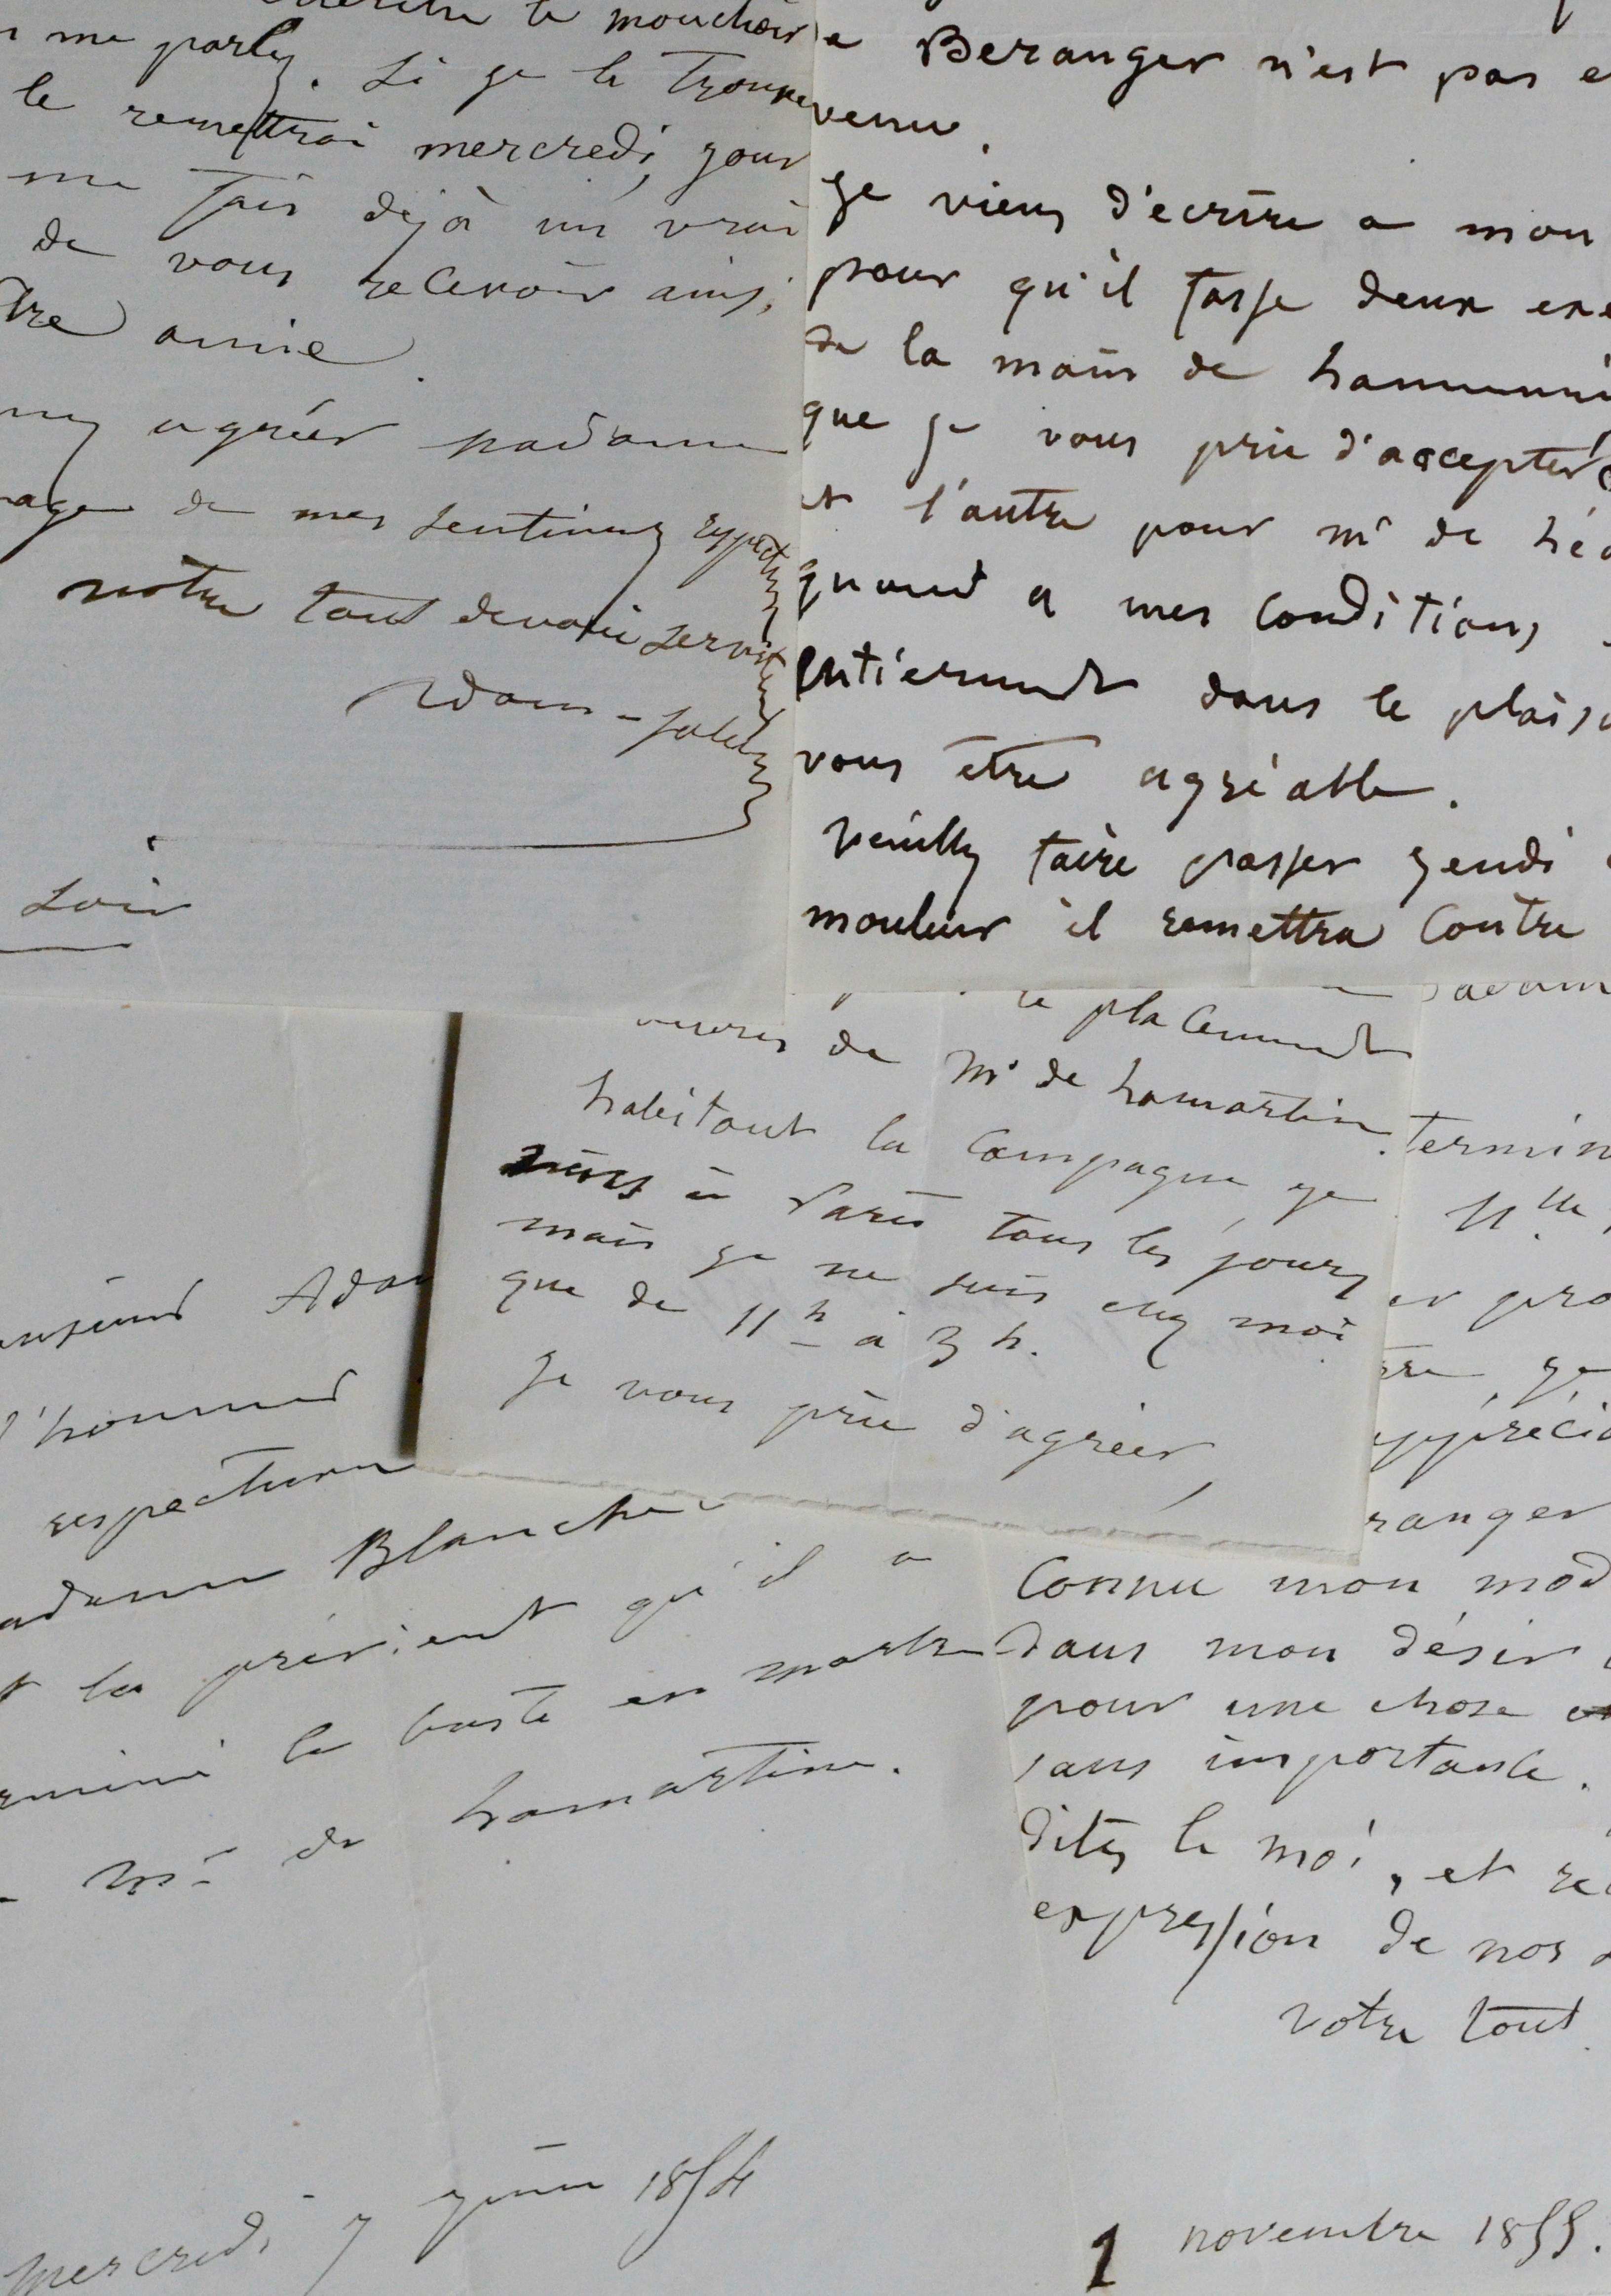 le mouchoir
me parlez. Si je le trouve
le remettrai mercredi, jour
me fais déjà un vrai
de vous recevoir ainsi
amie.
agréer madame
de mes sentimens
votre tout dévoué servit
Adam-Salomon
Soir
Beranger n'est pas e
venu.
je viens d'écrire a mon
pour qu'il fasse deux exe
de la main de
que je vous prie d'accepter
et l'autre pour mr de
quand a mes conditions
entièrement dans le plaisi
vous être agréable.
Veuillez faire passer jeudi
mouleur il remettra contre
le placement
de Mr de Lamartine.
habitant la campagne, je
viens à Paris tous les jours
mais je ne suis chez moi
que de 11h à 3 h.
Je vous prie d'agréer,
Adam
l'honneur
respectueu
adame Blanche
la prévient qu'il a
le buste en marbre
mr de Lamartine.
Mercredi 7 juin 1854
termin
Mlle
pro
je
apprécia
ranger
connu mon mod
dans mon désir
pour une chose
sans importance.
Dites le moi, et
expression de nos
votre tout
1 novembre 1855.